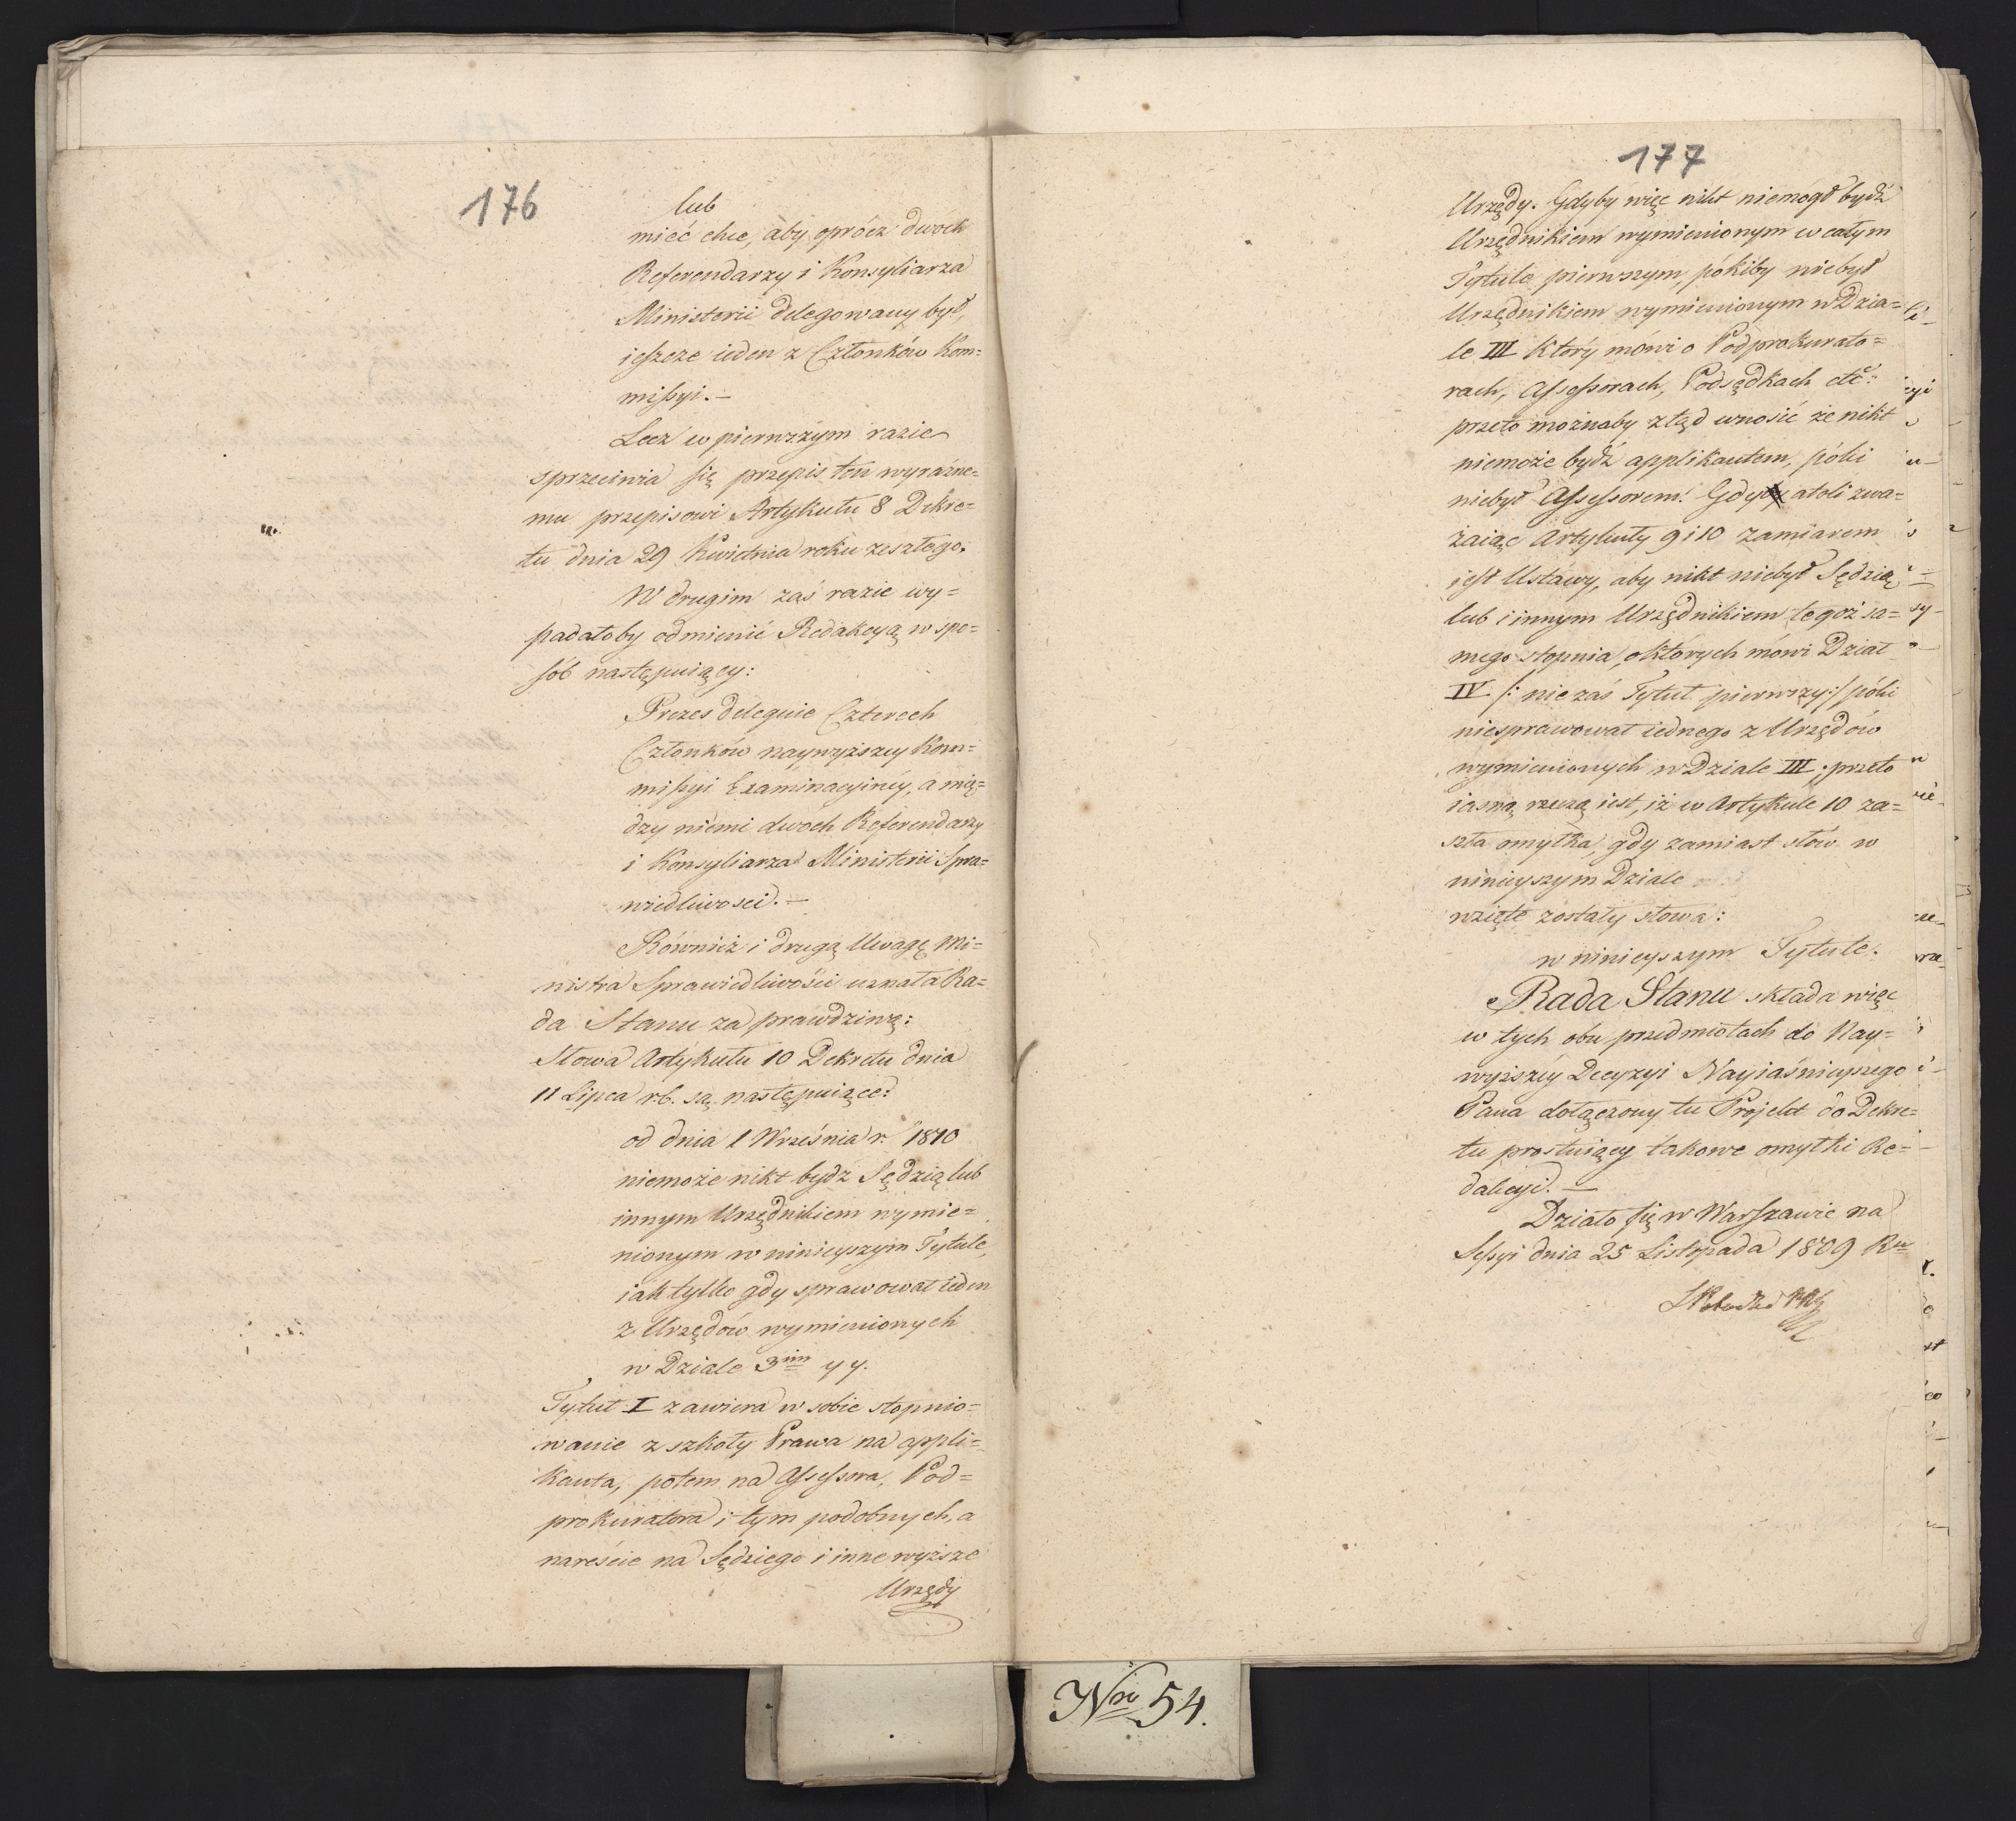 176
lub
mieć chce, aby oprócz dwóch
Referendarzy i Konsyliarza
Ministerii delegowany był,
ieszcze ieden z Członków Kom=
missyi. —
Lecz w pierwszym razie
sprzeciwia się przepis ten wyraźne=
mu przepisowi Artykułu 8 Dekre=
tu dnia 29 Kwietnia roku zeszłego.
W drugim zaś razie wy=
padałoby odmienić Redakcyą w spo=
sób następuiący:
Prezes deleguie Czterech
Członków naywyższey Kom=
missyi Examinacyiney, a mię=
dzy niemi dwoch Referendarzy
i Konsyliarza Ministerii Spra=
wiedliwosci. —
Również i drugą Uwagę Mi=
nistra Sprawiedliwości uznała Ra=
da Stanu za prawdziwą:
Słowa Artykułu 10 Dekretu dnia
11 Lipca r. b. są następuiące:
od dnia 1 Września r. 1810
niemoże nikt bydź Sędzią lub
innym Urzędnikiem wymie=
nionym w ninieyszym Tytule,
iak tylko gdy sprawował ieden
z Urzędów wymienionych
w Dziale 3im y y.
Tytuł I zawiera w sobie stopnio=
wanie z szkoły Prawa na appli=
kanta, potem na Assessora, Pod=
prokuratora i tym podobnych, a
nareście na Sędziego i inne wyższe
Urzędy
177
Urzędy. Gdyby więc nikt niemógł bydź
Urzędnikiem wymienionym w całym
Tytule pierwszym, pókiby niebył
Urzędnikiem wymienionym w Dzia=
le III który mówi o Podprokurato=
rach, Assessorach, Podsędkach etc:
przeto możnaby ztąd wnosić że nikt
niemoże bydź applikantem, póki
niebył Assessorem. Gdy atoli zwa=
żaiąc Artykuły 9 i 10 zamiarem
iest Ustawy, aby nikt niebył Sędzią
lub i innym Urzędnikiem tegoż sa=
mego stopnia, o których mówi Dział
IV /: nie zaś Tytuł pierwszy:/ póki
niesprawował iednego z Urzędów
wymienionych w Dziale III; przeto
iasną rzeczą iest, iż w Artykule 10 za=
szła omyłka, gdy zamiast słów w
ninieyszym Dziale
wzięte zostały słowa:
w ninieyszym Tytule.
Rada Stanu składa więc
w tych obu przedmiotach do Nay=
wyższey Decyzyi Nayiaśnieyszego
Pana dołączony tu Projekt do Dekre=
tu prostuiący takowe omyłki Re=
dakcyi. —
Działo się w Warszawie na
Sessyi dnia 25 Listopada 1809 Ru
Nro 54.